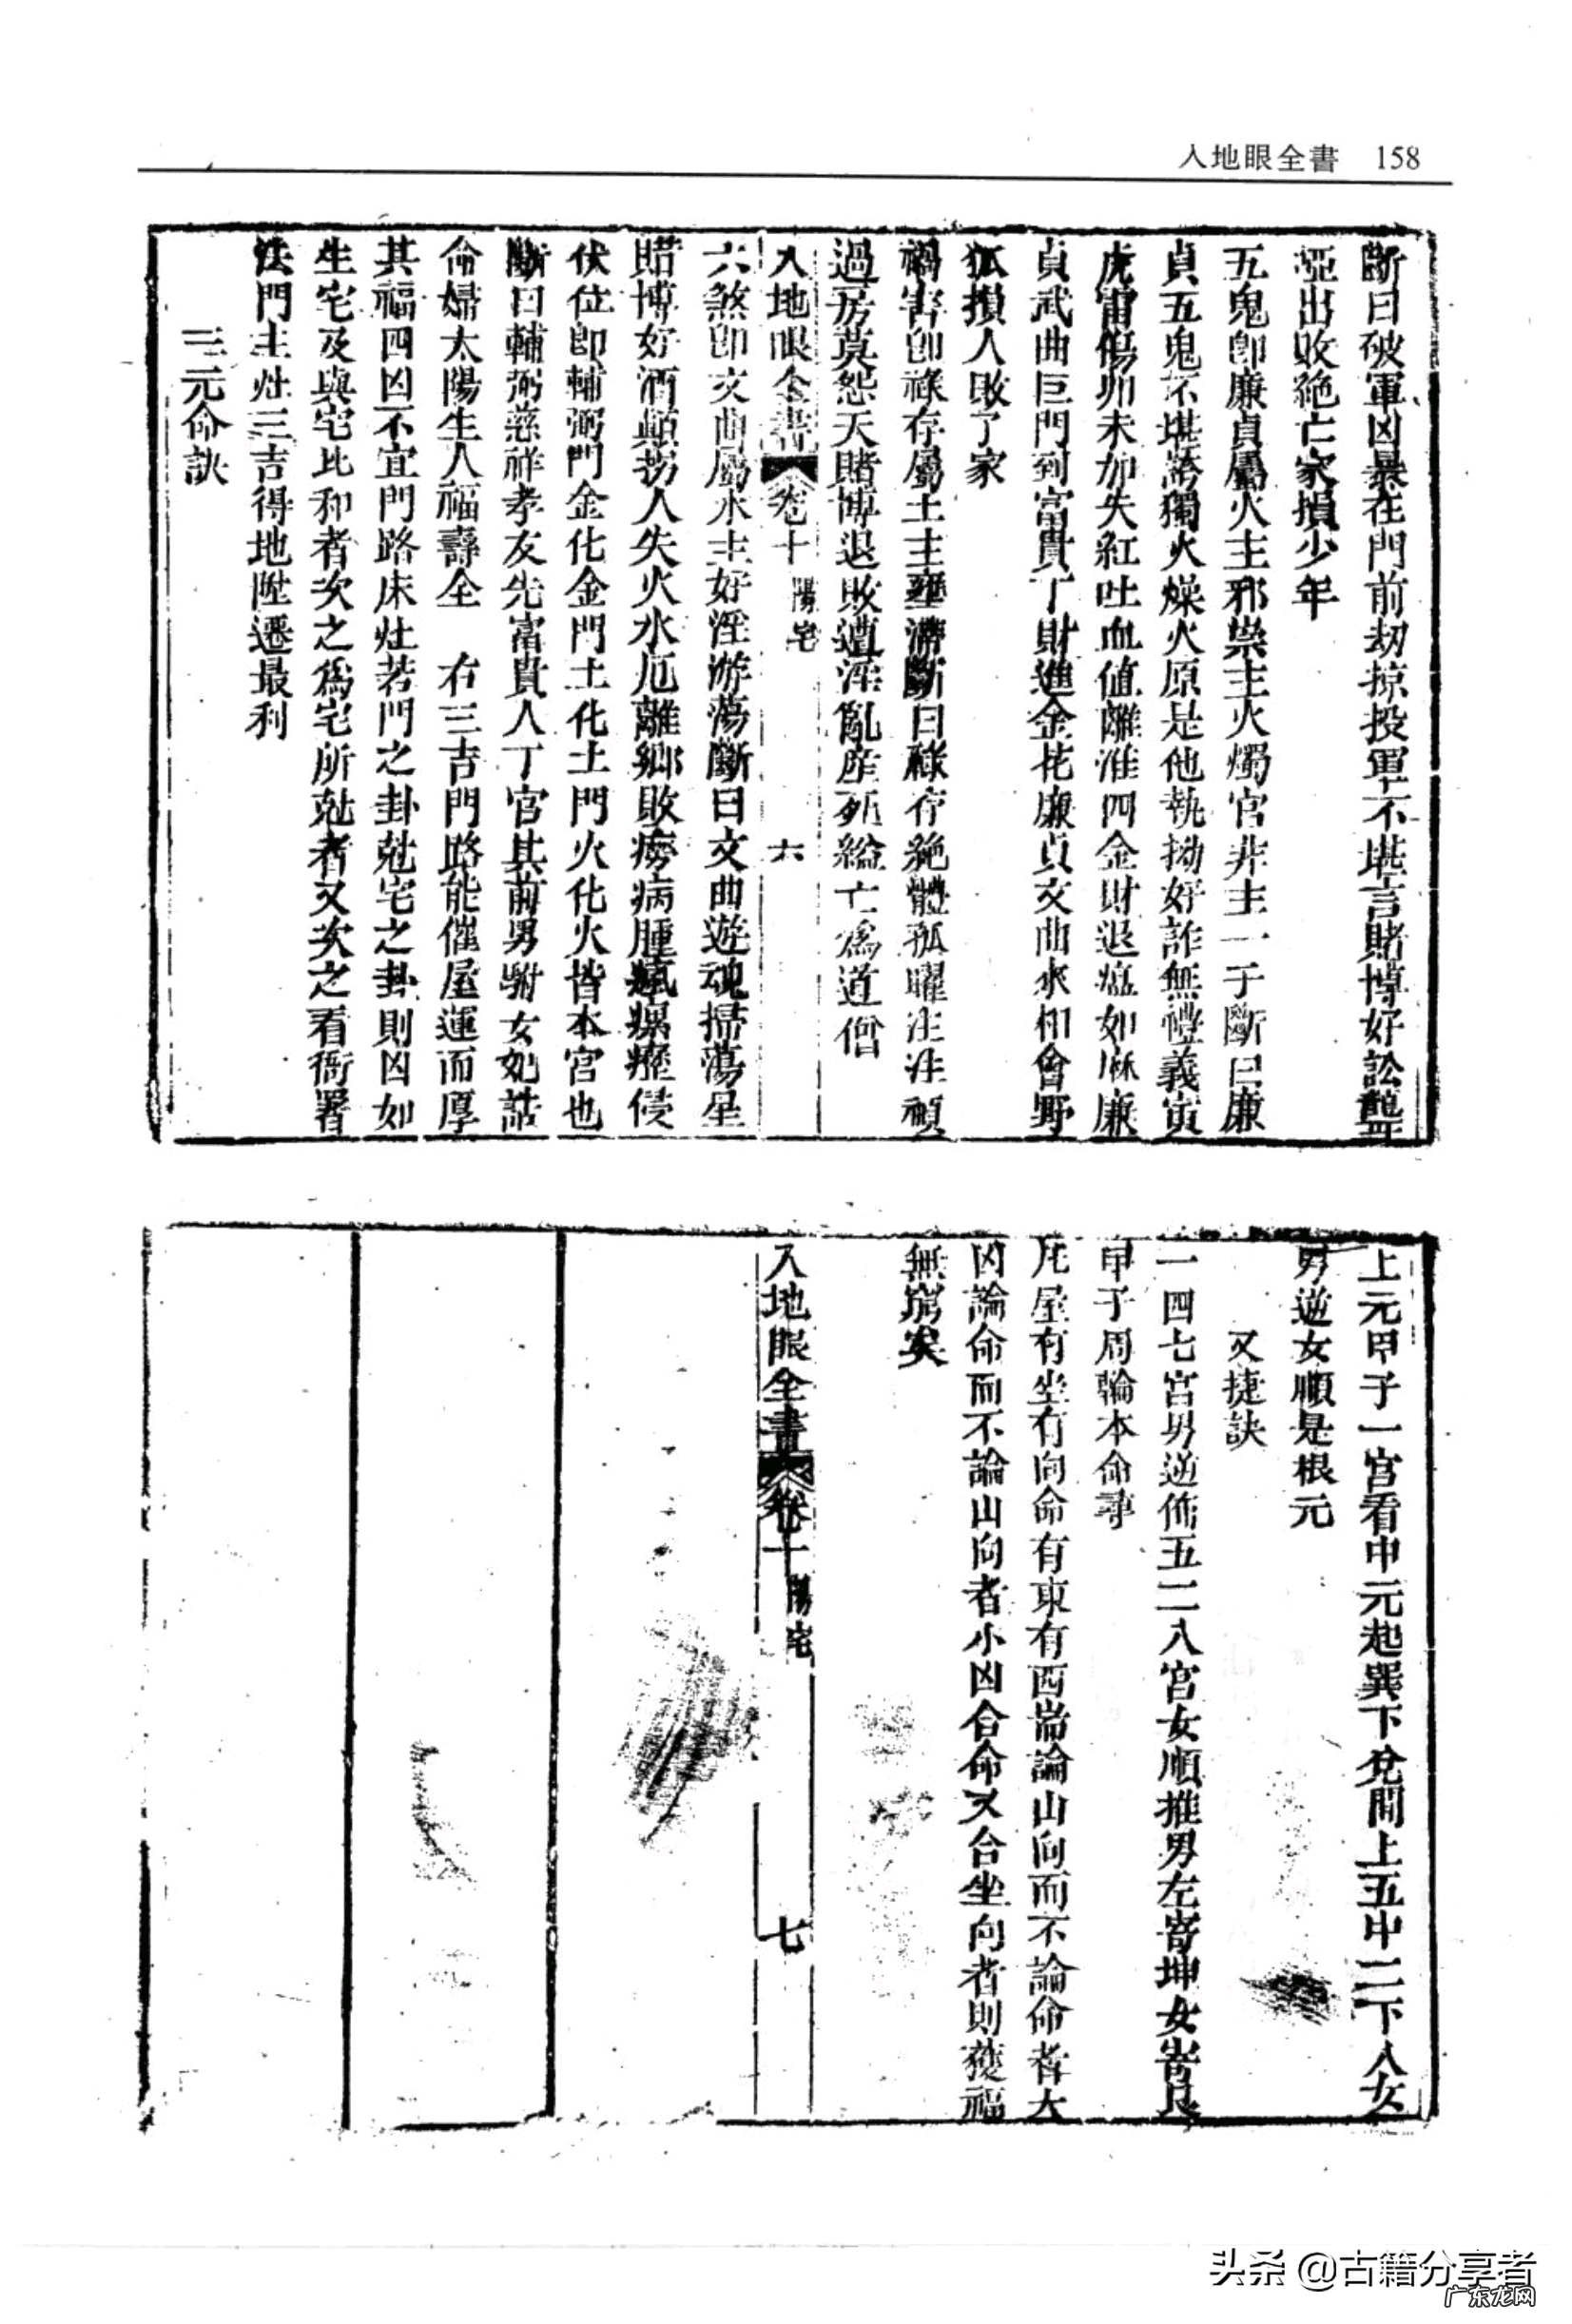 入地眼全書 158
斷曰破軍凶暴在門前劫掠投軍不堪言賭博好訟聾
啞出敗絶亡家損少年
五鬼即廉貞屬火主邪祟主火燭官非主一子斷曰廉
貞五鬼不堪誇獨火燥火原是他執拗好詐無禮義寅
虎雷傷卯未加失紅吐血値離淮四金財退瘟如麻廉
貞武曲巨門到富貴丁財進金花廉貞文曲水相會野
狐損人敗了家
禍害即祿存屬土主壅滯斷曰祿存絶體孤曜注注禎
過房莫怨天賭博退敗遭淫亂産死縊亡爲道僧
入地眼全書 卷十 陽宅 六
六煞即文曲屬水主好淫游蕩斷曰文曲遊魂掃蕩星
賭博好酒顛拐人失火水厄離鄉敗癆病腫瘋瘰癧侵
伏位即輔弼門金化金門土化土門火化火皆本宮也
斷曰輔弼慈祥孝友先富貴人丁官其前男駙女妃誥
命婦太陽生人福壽全 右三吉門路能催屋運而厚
其福四凶不宜門路床灶若門之卦尅宅之卦則凶如
生宅及與宅比和者次之爲宅所尅者又次之看衙署
法門主灶三吉得地陞遷最利
三元命訣
上元甲子一宮看中元起巽下兌間上五中二下八女
男逆女順是根元
又捷訣
一四七宮男逆佈五二八宮女順推男左寄坤女寄艮
甲子周輪本命尋
凡屋有坐有向命有東有西耑論山向而不論命者大
凶論命而不論山向者小凶合命又合坐向者則獲福
無窮矣
入地眼全書 卷十 陽宅 七
头条 @古籍分享者
广东龙网